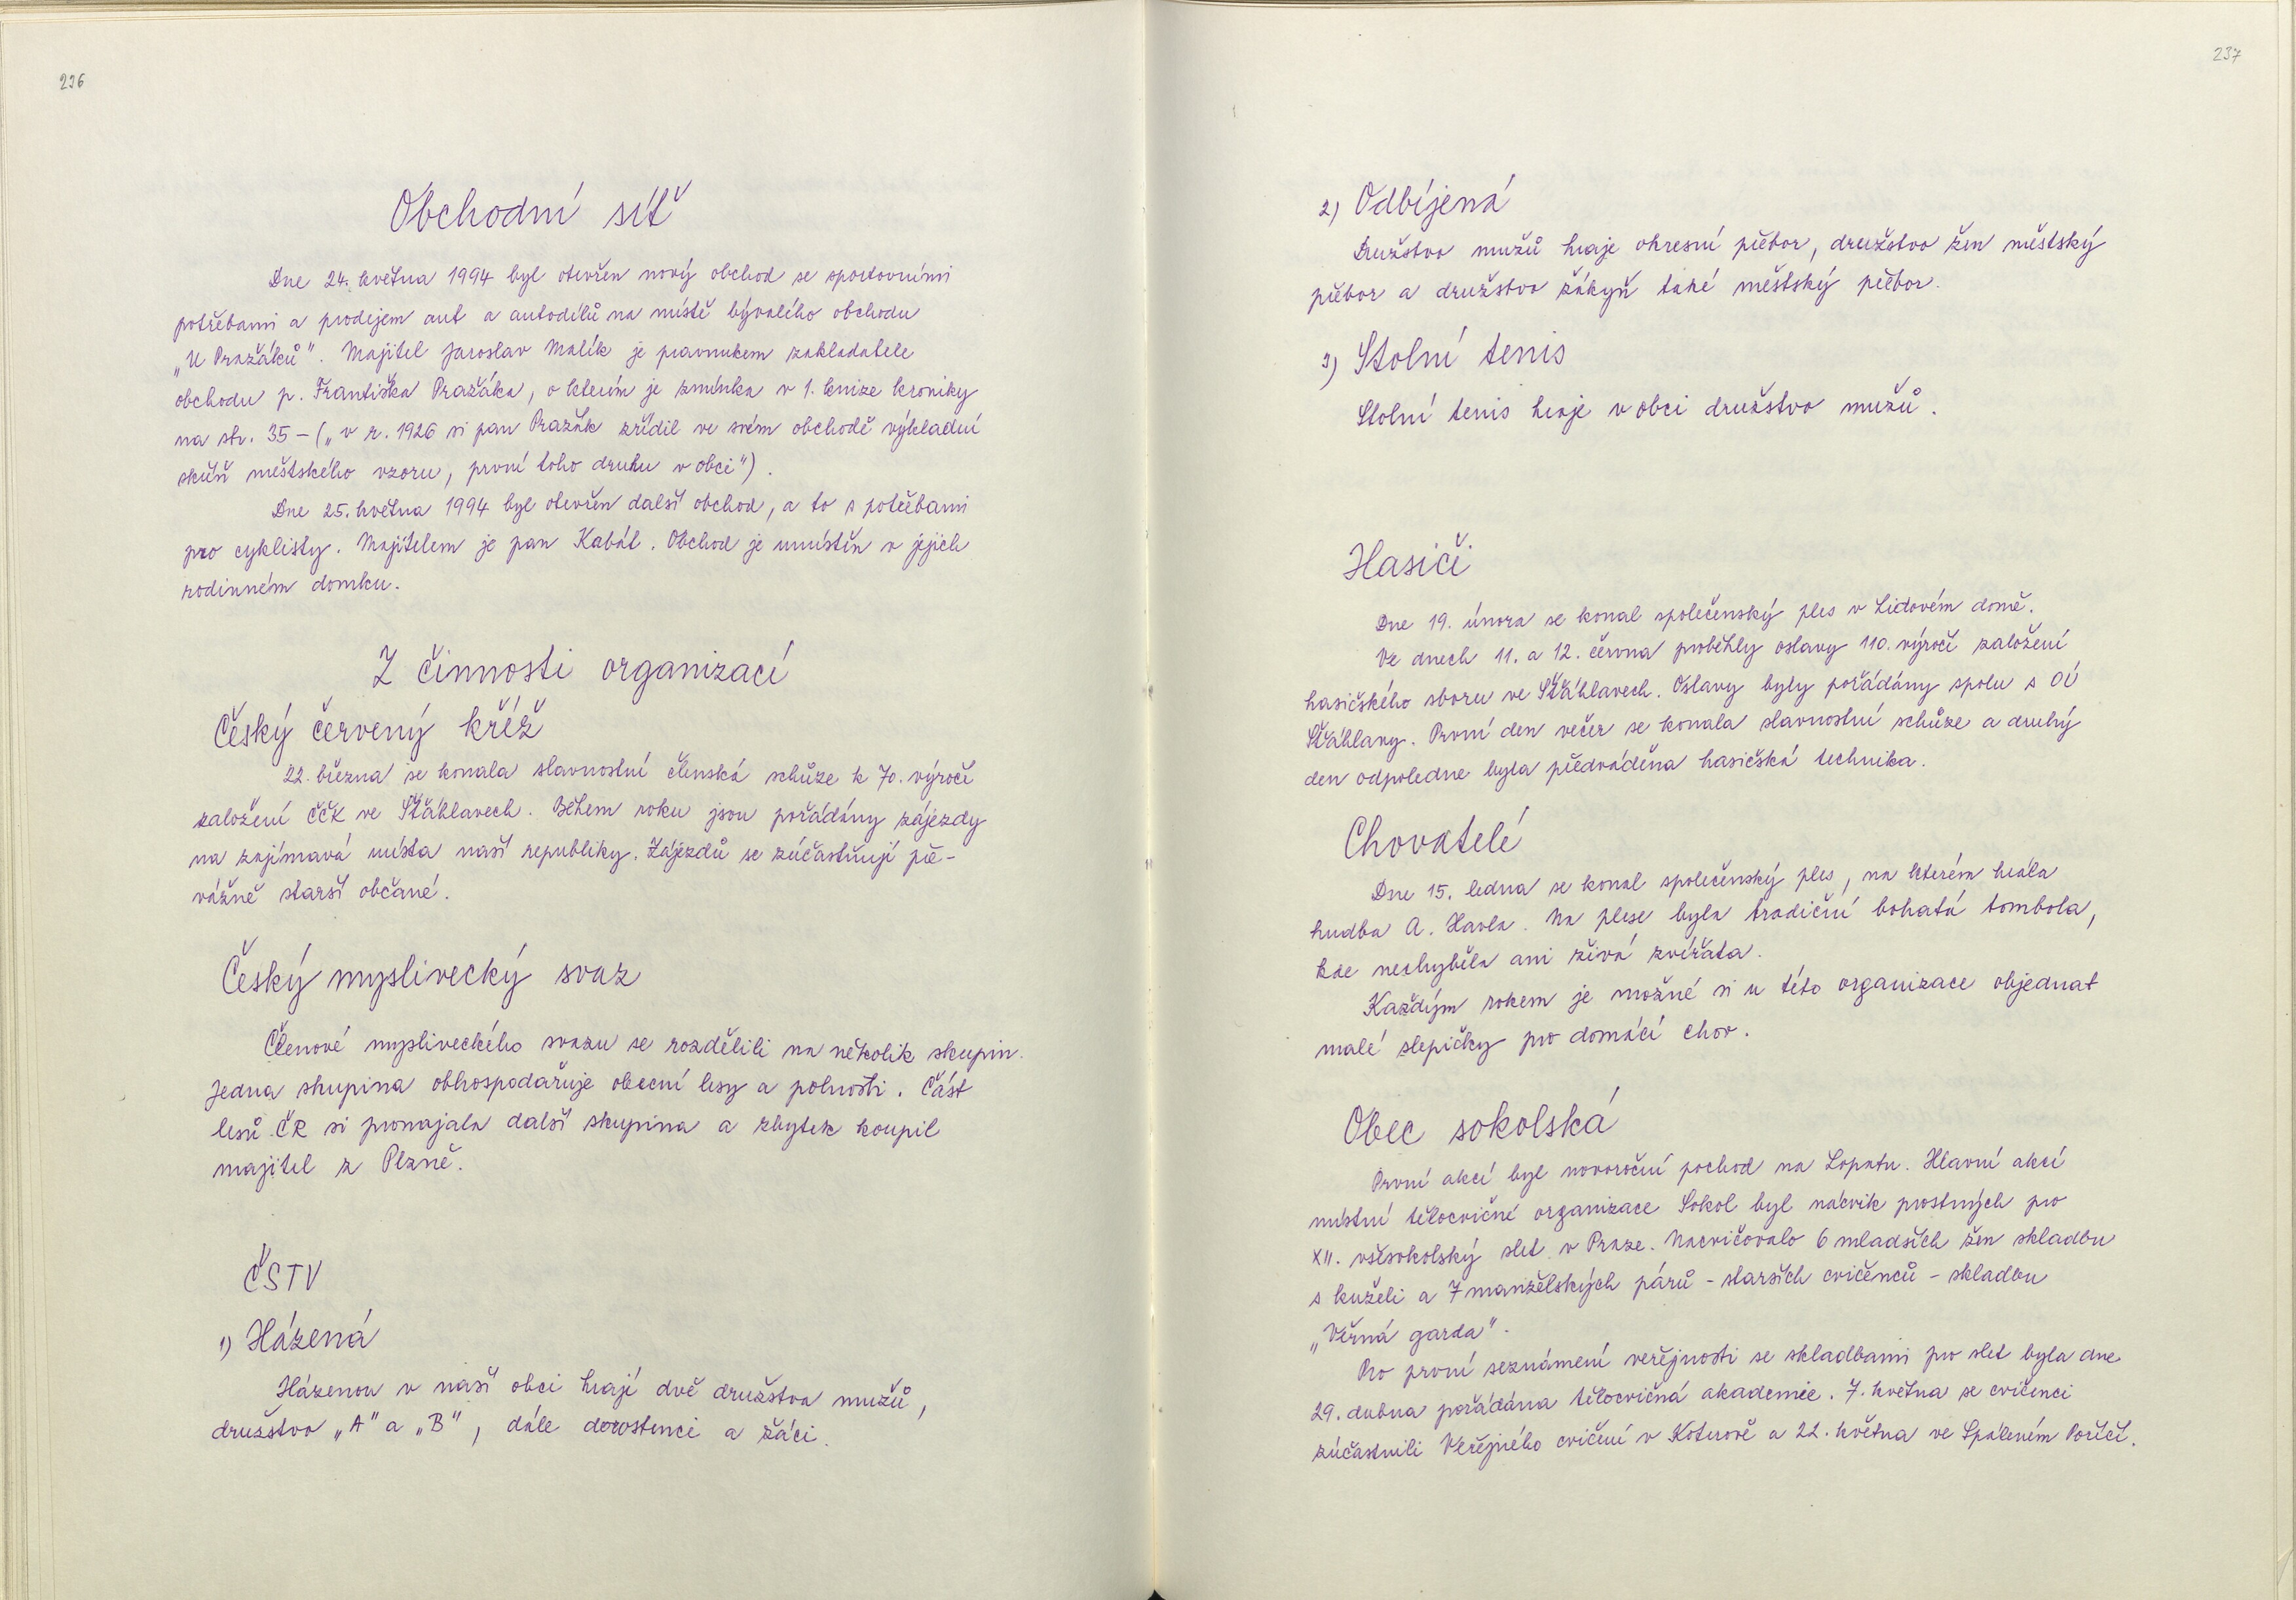 236
Obchodní síť
Dne 24. května 1994 byl otevřen nový obchod se sportovními
potřebami a prodejem aut a autodílů na místě bývalého obchodu
„U Pražáků". Majitel Jaroslav Malík je pravnukem zakladatele
obchodu p. Františka Pražáka, o kterém je zmínka v 1. knize kroniky
na str. 35 – („ v r. 1926 si pan Pražák zřídil ve svém obchodě výkladní
skříň městského vzoru, první toho druhu v obci").
Dne 25. května 1994 byl otevřen další obchod, a to s potřebami
pro cyklisty. Majitelem je pan Kabát. Obchod je umístěn v jejich
rodinném domku.
Z činnosti organizací
Český červený kříž
22. března se konala slavnostní členská schůze k 70. výročí
založení ČČK ve Šťáhlavech. Během roku jsou pořádány zájezdy
na zajímavá místa naší republiky. Zájezdů se zúčastňují pře-
vážně starší občané.
Český myslivecký svaz
Členové mysliveckého svazu se rozdělili na několik skupin.
Jedna skupina obhospodařuje obecní lesy a polnosti. Část
lesů ČR si pronajala další skupina a zbytek koupil
majitel z Plzně.
ČSTV
1) Házená
Házenou v naší obci hrají dvě družstva mužů,
družstvo „A" a „B", dále dorostenci a žáci.
237
2) Odbíjená
Družstvo mužů hraje okresní přebor, družstvo žen městský
přebor a družstvo žákyň také městský přebor.
3) Stolní tenis
Stolní tenis hraje v obci družstvo mužů.
Hasiči
Dne 19. února se konal společenský ples v Lidovém domě.
Ve dnech 11. a 12. června proběhly oslavy 110. výročí založení
hasičského sboru ve Šťáhlavech. Oslavy byly pořádány spolu s OÚ
Šťáhlavy. První den večer se konala slavnostní schůze a druhý
den odpoledne byla předváděna hasičská technika.
Chovatelé
Dne 15. ledna se konal společenský ples, na kterém hrála
hudba A. Havla. Na plese byla tradiční bohatá tombola,
kde nechyběla ani živá zvířata.
Každým rokem je možné si u této organizace objednat
malé slepičky pro domácí chov.
Obec sokolská
První akcí byl novoroční pochod na Lopatu. Hlavní akcí
místní tělocvičné organizace Sokol byl nácvik prostných pro
XII. všesokolský slet v Praze. Nacvičovalo 6 mladších žen skladbu
s kuželi a 7 manželských párů – starších cvičenců – skladbu
„Věrná garda".
Pro první seznámení veřejnosti se skladbami pro slet byla dne
29. dubna pořádána tělocvičná akademie. 7. května se cvičenci
zúčastnili Veřejného cvičení v Koterově a 22. května ve Spáleném Poříčí.